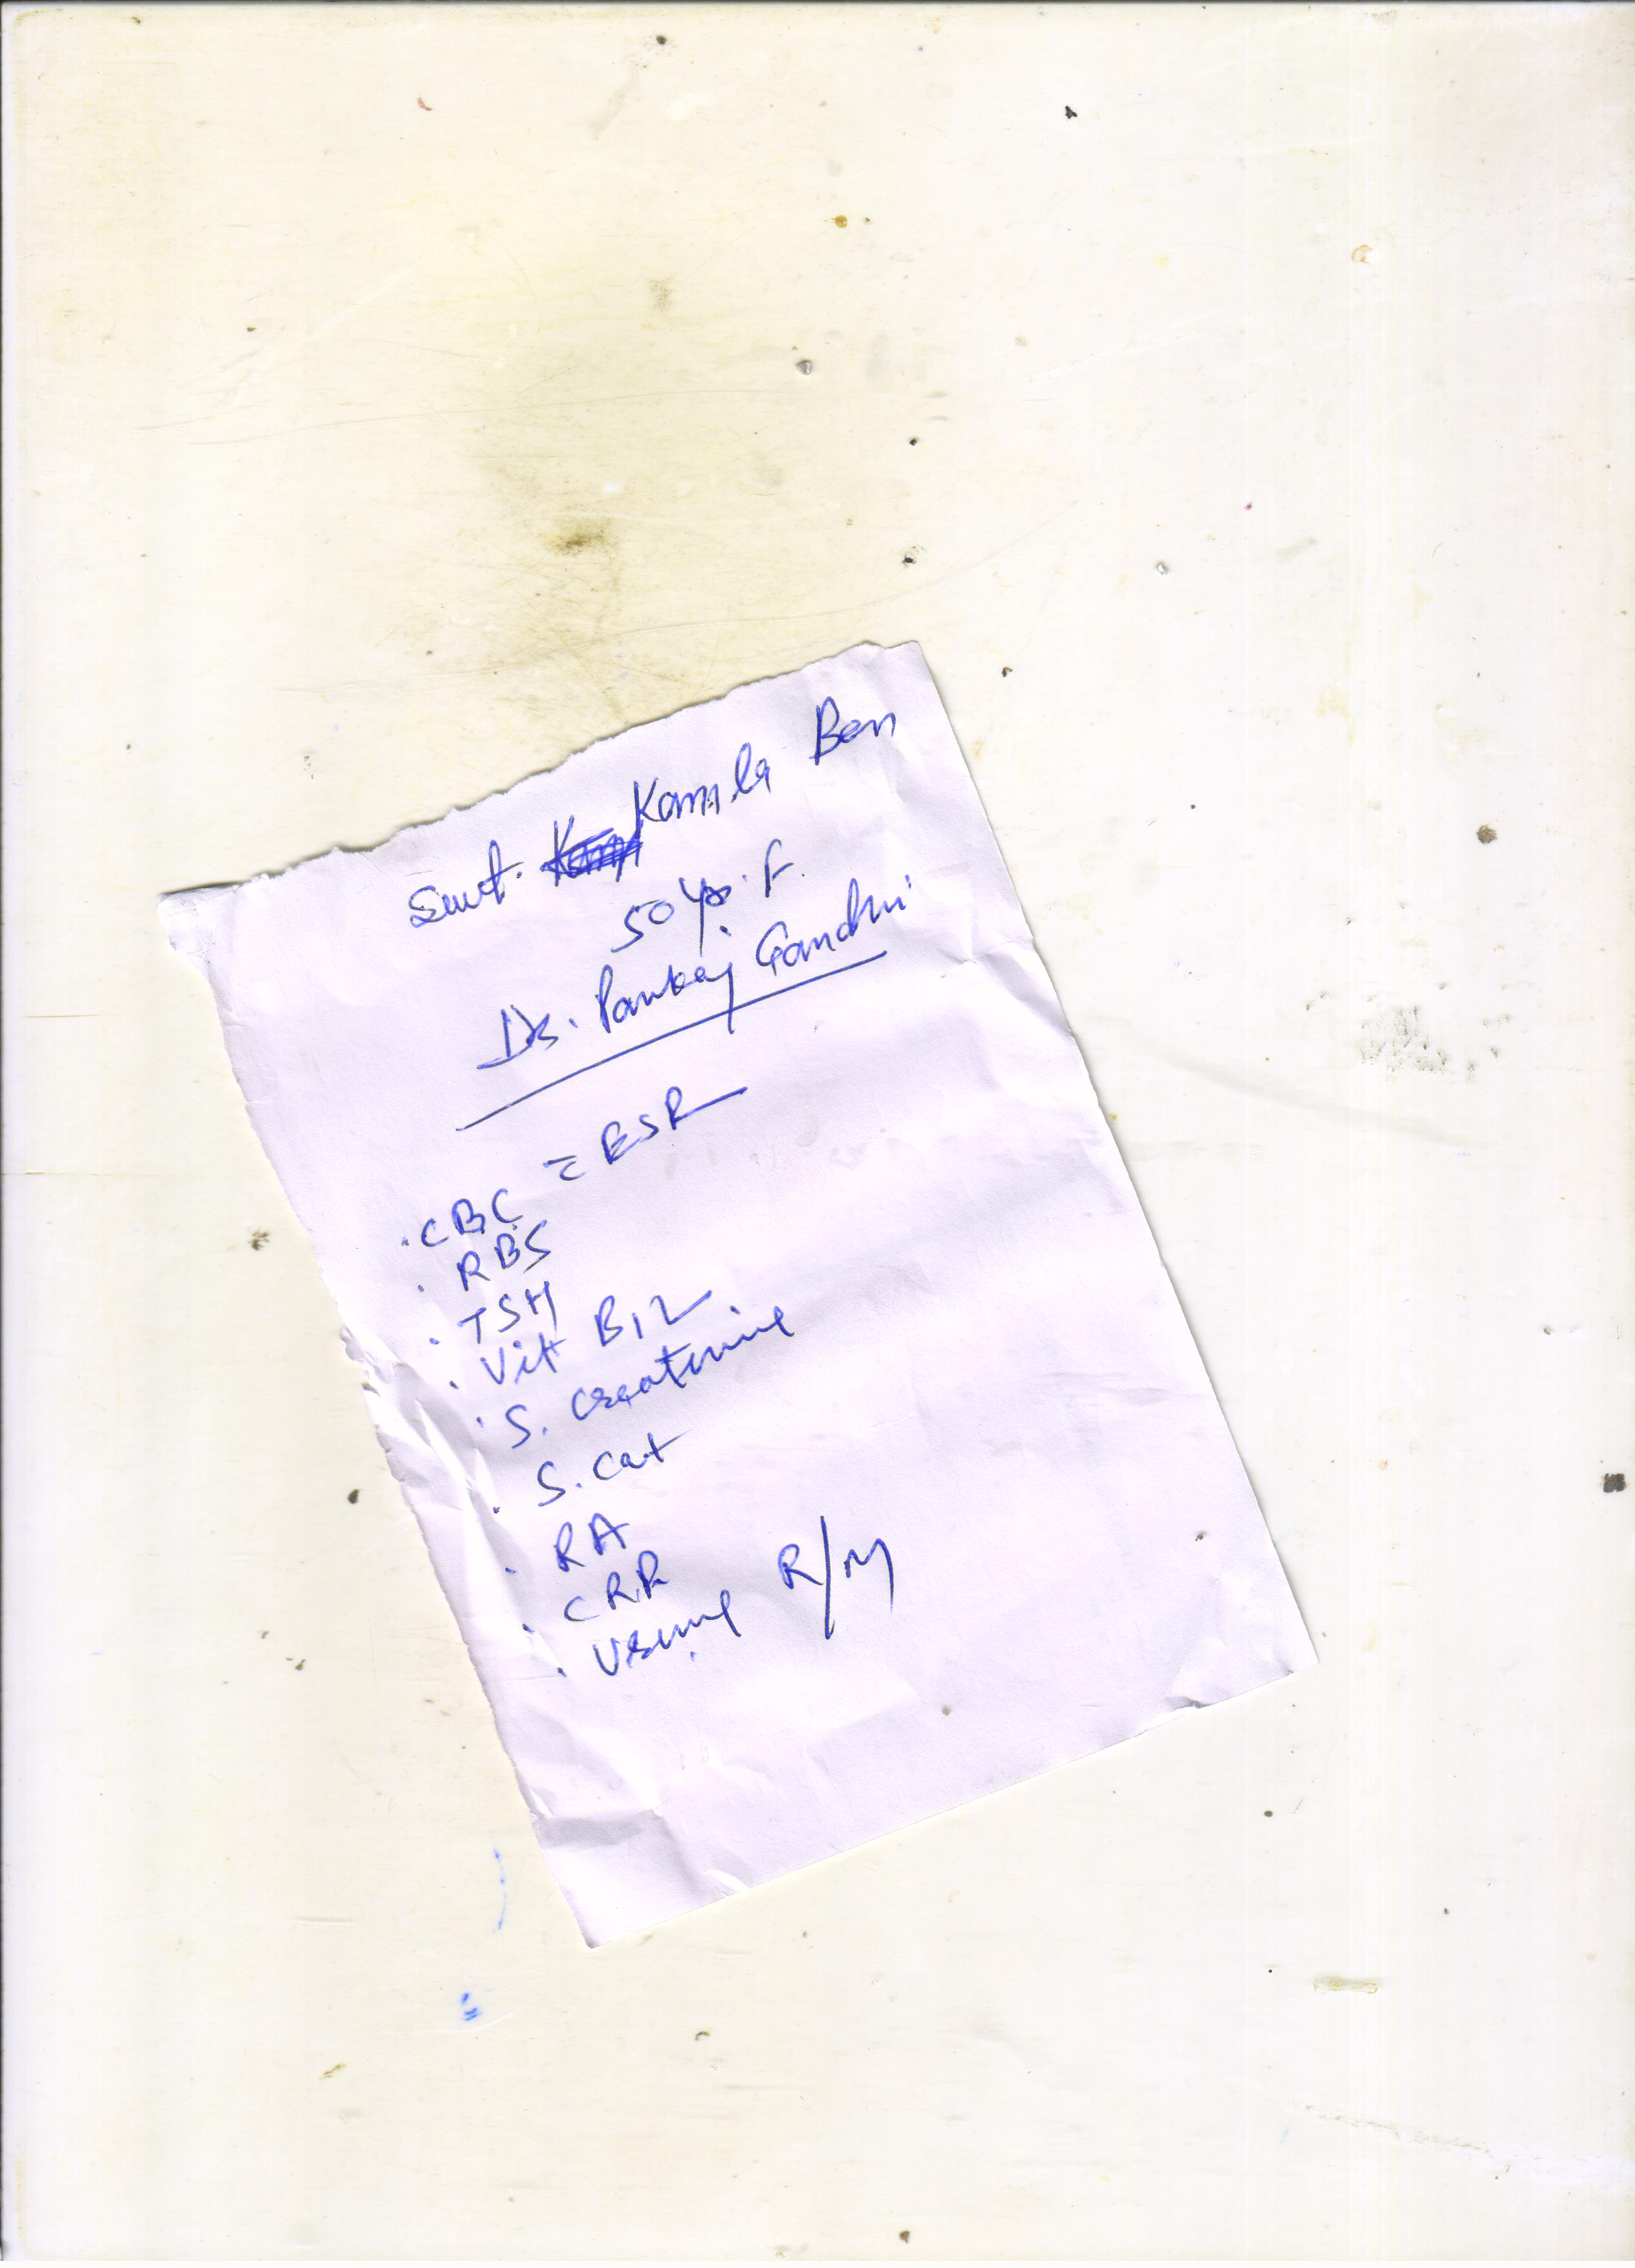 Smt. Kamla Ben
50 Yr. F.
Dr. Pankaj Gandhi
. CBC = ESR
. RBS
. TSH
. Vit B12
. S. Creatinine
. S. Cal
. RA
. CRP
. Urine R/M